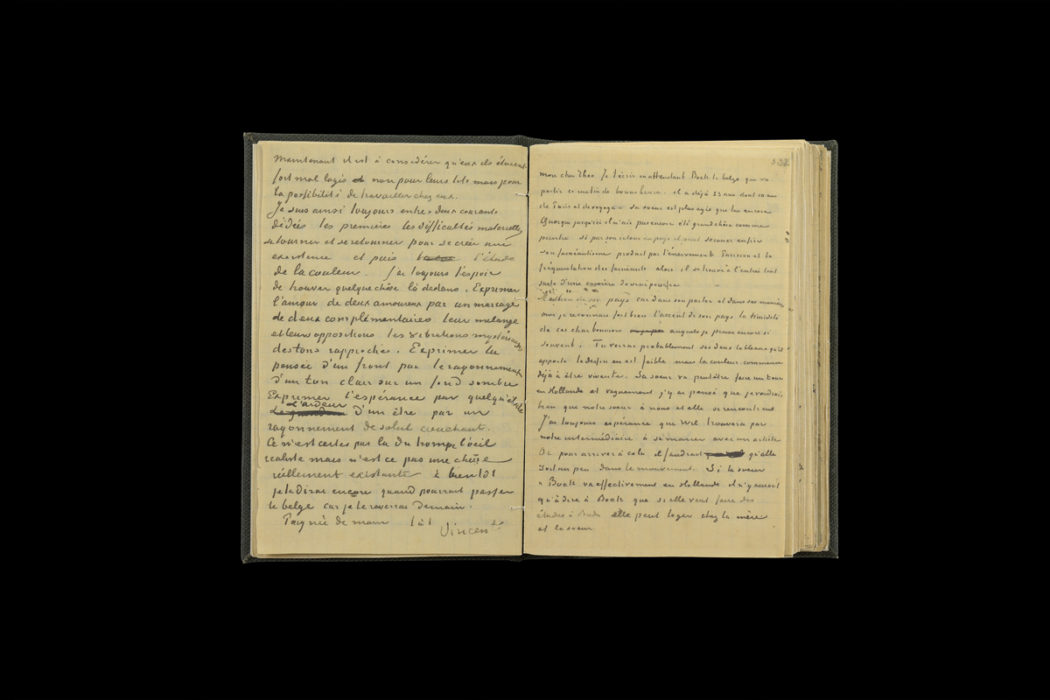 maintenant il est à considérer qu'eux ils étaient
fort mal logés non pour leurs lits mais pour
la possibilité de travailler chez eux.
Je suis ainsi toujours entre deux courants
d'idées les premières les difficultés materielles
se tourner et se retourner pour se créer une
existence et puis l'étude
de la couleur. J'ai toujours l'espoir
de trouver quelque chôse là dedans. Exprimer
l'amour de deux amoureux par un mariage
de deux complémentaires leur mélange
et leurs oppositions les vibrations mystérieuses
des tons rapprochés. Exprimer la
pensée d'un front par le rayonnement
d'un ton clair sur un fond sombre
Exprimer l'espérance par quelqu'étoile
L'ardeur
d'un être par un
rayonnement de soleil couchant.
Ce n'est certes pas là du trompe l'oeil
réaliste mais n'est ce pas une chôse
réellement existante à bientôt
je te dirai encore quand pourrait passer
le belge car je le reverrai demain.
Poignée de main t. à t.
Vincent
mon cher Theo Je t'écris en attendant Boch le belge qui va
partir ce matin de bonne heure. il a déjà 33 ans dont 10 ans
de Paris et de voyages. Sa soeur est plus agée que lui encore
Quoique jusqu'ici il n'aie pas encore été grand chôse comme
peintre si par son retour au pays il peut secouer enfin
son féminitisme produit par l'énervement Parisien et la
fréquentation des féministes alors il se trouve à l'entrée tout
juste d'une carrière de vrai peintre
pays car dans son parler et dans ses manières
moi je reconnais fort bien l'accent de son pays la timidité
de ces charbonniers auquels je pense encore si
souvent. Tu verras probablement ses deux tableaux qu'il
apporte le dessin en est faible mais la couleur commence
déjà à être vivante. Sa soeur va peutêtre faire un tour
en Hollande et vaguement j'y ai pensé que je voudrais
bien que notre soeur à nous et elle se rencontrent
J'ai toujours espérance que Wil trouvera par
notre intermédiaire à se marier avec un artiste
Or pour arriver à cela il faudrait qu'elle
soit un peu dans le mouvement. Si la soeur
à Boch va effectivement en Hollande il n'y aurait
qu'à dire à Boch que si elle veut faire des
études à Breda elle peut loger chez la mère
et la soeur